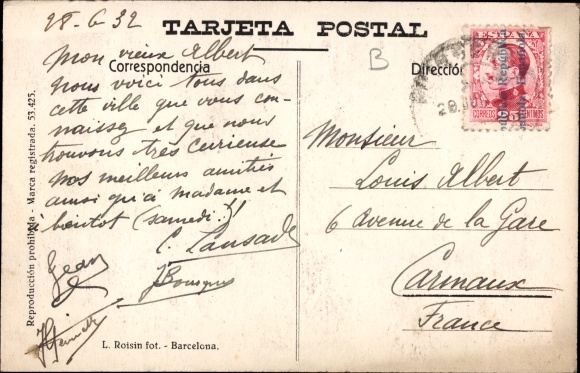 28-6-32
TARJETA POSTAL
Correspondencia
B
Dirección
ESPAÑA
CORREOS
Mon vieux Albert
nous voici tous dans
cette ville que vous con-
naissez et que nous
trouvons très curieuse
nos meilleurs amitiés
ainsi qu'à madame et
à bientôt (samedi !)!
C. Lansade
Jean
J Bousquet
Monsieur
Louis Albert
6 Avenue de la Gare
Carmaux
France
L. Roisin fot. - Barcelona.
Reproducción prohibida - Marca registrada. 53.425.